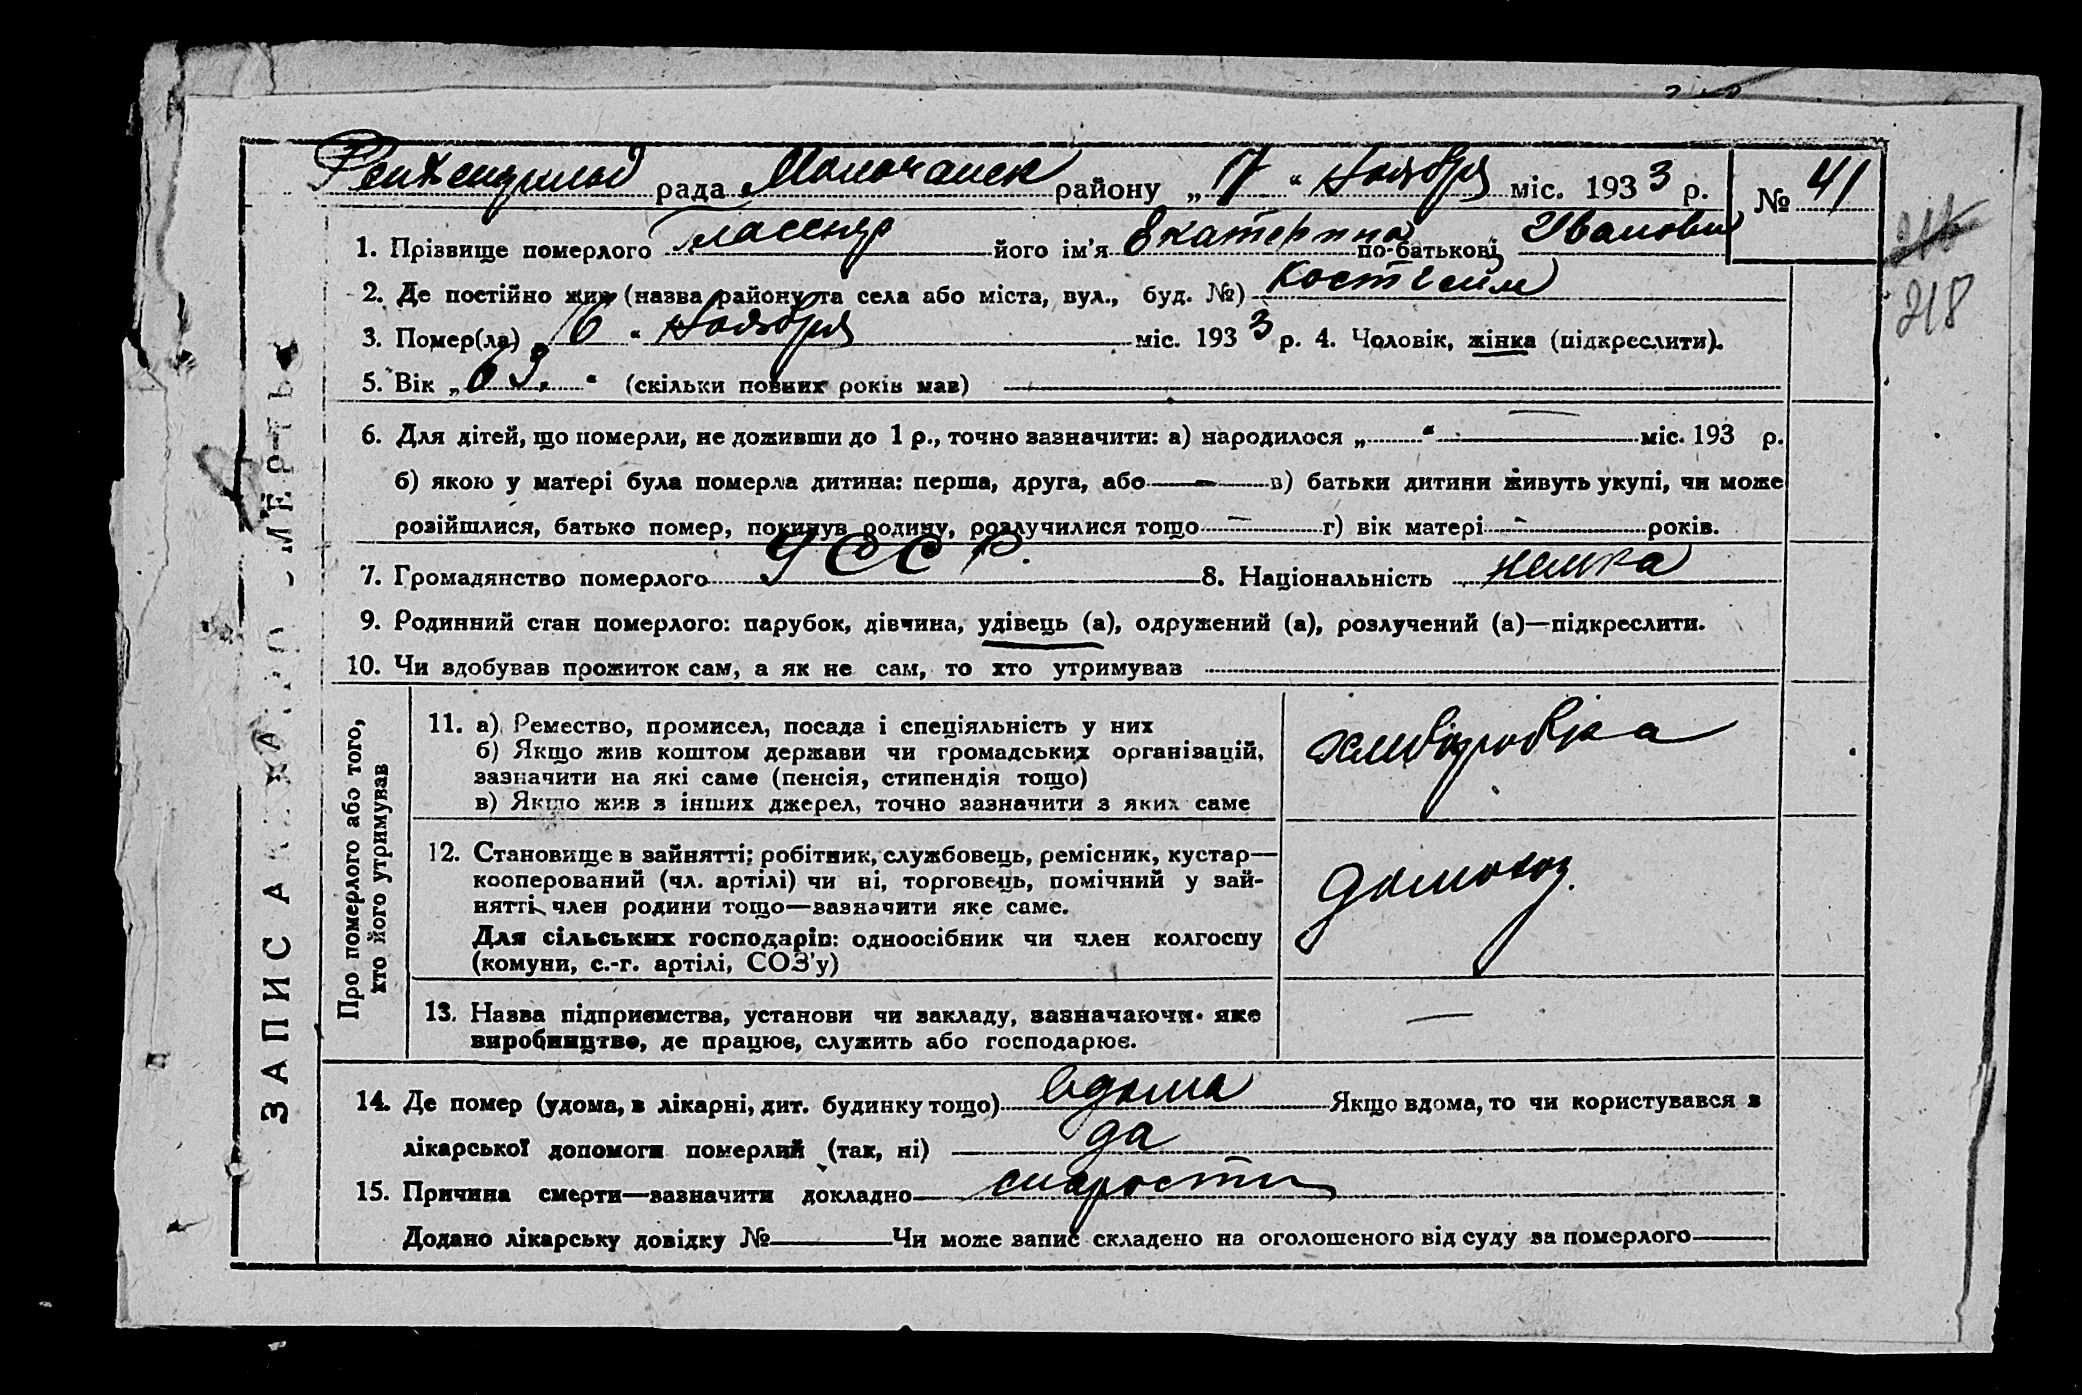 рада Молочанск району „17“ Ноября міс. 1933 р. № 41
1. Прізвище померлого його ім'я Екатерина по-батькові Ивановн
2. Де постійно жив (назва району та села або міста, вул., буд. №) Костгейм
3. Помер(ла) „16“ Ноября міс. 1933 р. 4. Чоловік, жінка (підкреслити).
5. Вік „63“ (скільки повних років мав)
6. Для дітей, що померли, не доживши до 1 р., точно зазначити: а) народилося „ “ міс. 193 р.
б) якою у матері була померла дитина: перша, друга, або — в) батьки дитини живуть укупі, чи може
розійшлися, батько помер, покинув родину, розлучилися тощо — г) вік матері - років.
7. Громадянство померлого УССР. 8. Національність немка
9. Родинний стан померлого: парубок, дівчина, удівець (а), одружений (а), розлучений (а)—підкреслити.
10. Чи здобував прожиток сам, а як не сам, то хто утримував
Про померлого або того,
хто його утримував
11. а) Ремество, промисел, посада і спеціяльність у них
б) Якщо жив коштом держави чи громадських організацій,
зазначити на які саме (пенсія, стипендія тощо)
в) Якщо жив з інших джерел, точно зазначити з яких саме
хлиборобка
12. Становище в зайнятті: робітник, службовець, ремісник, кустар—
кооперований (чл. артілі) чи ні, торговець, помічний у зай-
нятті, член родини тощо—зазначити яке саме.
Для сільських господарів: одноосібник чи член колгоспу
(комуни, с.-г. артілі, СОЗ'у)
домохоз.
13. Назва підприємства, установи чи закладу, зазначаючи яке
виробництво, де працює, служить або господарює.
—
14. Де помер (удома, в лікарні, дит. будинку тощо) вдома Якщо вдома, то чи користувався з
лікарської допомоги померлий (так, ні) да
15. Причина смерти—зазначити докладно старости
Додано лікарську довідку № Чи може запис складено на оголошеного від суду за померлого
ЗАПИС АКТ СМЕРТЬ
218